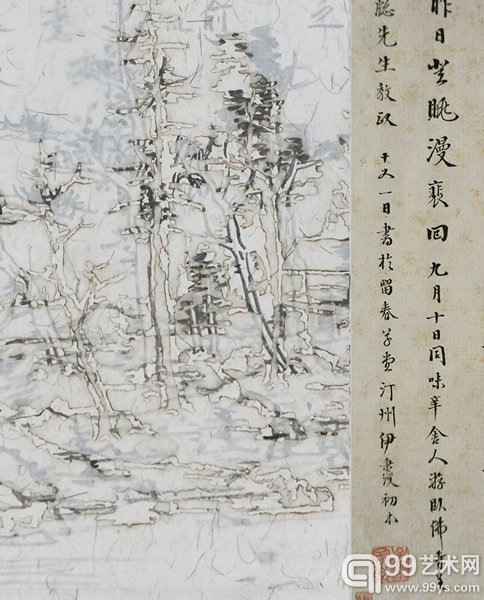 昨日登眺漫裵回 九月十日同味辛舍人游臥佛
聰先生教政 十又一日書於留春草堂汀州伊秉綬初
99艺术网
www.99ys.com